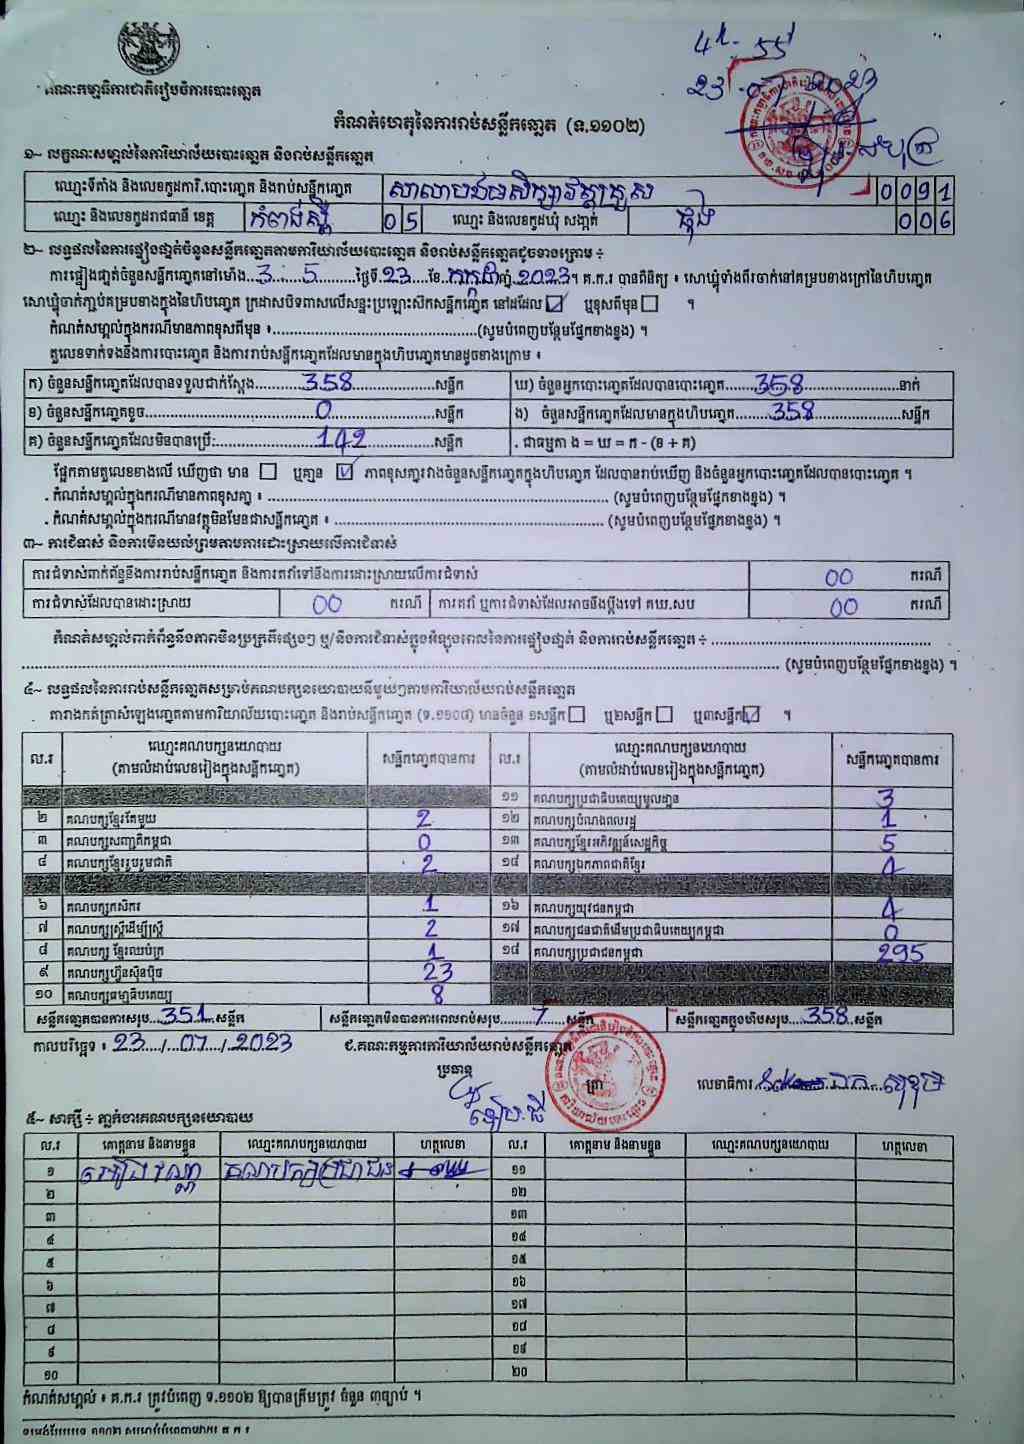 គណៈកម្មាធិការជាតិរៀបចំការបោះឆ្នោត
23
កំណត់ហេតុនៃការរាប់សន្លឹកឆ្នោត (ទ.១១០២)
១~ លក្ខណៈសម្គាល់នៃការិយាល័យបោះឆ្នោត និងរាប់សន្លឹកឆ្នោត
ឈ្មោះទីតាំង និងលេខកូដការិ.បោះឆ្នោត និងរាប់សន្លឹកឆ្នោត 0 0 9 1
ឈ្មោះ និងលេខកូដរាជធានី ខេត្ត កំពង់ស្ពឺ 0 5 ឈ្មោះ និងលេខកូដឃុំ សង្កាត់ 0 0 6
២~ លទ្ធផលនៃការផ្ទៀងផ្ទាត់ចំនួនសន្លឹកឆ្នោតតាមការិយាល័យបោះឆ្នោត និងរាប់សន្លឹកឆ្នោតដូចខាងក្រោម ÷
ការផ្ទៀងផ្ទាត់ចំនួនសន្លឹកឆ្នោតនៅម៉ោង 3 . 5 ថ្ងៃទី 23 ខែ កក្កដា ឆ្នាំ 2023 ។ គ.ក.រ បានពិនិត្យ ៖ សោឃ្លុំទាំងពីរចាក់នៅគម្របខាងក្រៅនៃហិបឆ្នោត
សោឃ្លុំចាក់ភ្ជាប់គម្របខាងក្នុងនៃហិបឆ្នោត ក្រដាសបិទពាសលើសន្ទះប្រឡោះសឹកសន្លឹកឆ្នោត នៅដដែល ☑ ឬខុសពីមុន ☐ ។
កំណត់សម្គាល់ក្នុងករណីមានភាពខុសពីមុន ៖ (សូមបំពេញបន្ថែមផ្នែកខាងខ្នង) ។
តួលេខទាក់ទងនឹងការបោះឆ្នោត និងការរាប់សន្លឹកឆ្នោតដែលមានក្នុងហិបឆ្នោតមានដូចខាងក្រោម ៖
ក) ចំនួនសន្លឹកឆ្នោតដែលបានទទួលជាក់ស្តែង 358 សន្លឹក ឃ) ចំនួនអ្នកបោះឆ្នោតដែលបានបោះឆ្នោត 358 នាក់
ខ) ចំនួនសន្លឹកឆ្នោតខូច 0 សន្លឹក ង) ចំនួនសន្លឹកឆ្នោតដែលមានក្នុងហិបឆ្នោត 358 សន្លឹក
គ) ចំនួនសន្លឹកឆ្នោតដែលមិនបានប្រើ: 142 សន្លឹក . ជាធម្មតា ង = ឃ = ក - (ខ + គ)
ផ្អែកតាមតួលេខខាងលើ ឃើញថា មាន ☐ ឬគ្មាន ☑ ភាពខុសគ្នារវាងចំនួនសន្លឹកឆ្នោតក្នុងហិបឆ្នោត ដែលបានរាប់ឃើញ និងចំនួនអ្នកបោះឆ្នោតដែលបានបោះឆ្នោត ។
. កំណត់សម្គាល់ក្នុងករណីមានភាពខុសគ្នា ៖ (សូមបំពេញបន្ថែមផ្នែកខាងខ្នង) ។
. កំណត់សម្គាល់ក្នុងករណីមានវត្ថុមិនមែនជាសន្លឹកឆ្នោត ៖ (សូមបំពេញបន្ថែមផ្នែកខាងខ្នង) ។
៣~ ការជំទាស់ និងការមិនយល់ព្រមតាមការដោះស្រាយលើការជំទាស់
ការជំទាស់ពាក់ព័ន្ធនឹងការរាប់សន្លឹកឆ្នោត និងការតវ៉ាទៅនឹងការដោះស្រាយលើការជំទាស់ 00 ករណី
ការជំទាស់ដែលបានដោះស្រាយ 00 ករណី ការតវ៉ា ឬការជំទាស់ដែលអាចនឹងប្តឹងទៅ គឃ.សប 00 ករណី
កំណត់សម្គាល់ពាក់ព័ន្ធនឹងភាពមិនប្រក្រតីផ្សេងៗ ឬ/និងការជំទាស់ក្នុងអំឡុងពេលនៃការផ្ទៀងផ្ទាត់ និងការរាប់សន្លឹកឆ្នោត ÷
(សូមបំពេញបន្ថែមផ្នែកខាងខ្នង) ។
៤~ លទ្ធផលនៃការរាប់សន្លឹកឆ្នោតសម្រាប់គណបក្សនយោបាយនីមួយៗតាមការិយាល័យរាប់សន្លឹកឆ្នោត
តារាងកត់ត្រាសំឡេងឆ្នោតតាមការិយាល័យបោះឆ្នោត និងរាប់សន្លឹកឆ្នោត (ទ.១១០៨) មានចំនួន ១សន្លឹក ☐ ឬ២សន្លឹក ☐ ឬ៣សន្លឹក ☑ ។
ល.រ ឈ្មោះគណបក្សនយោបាយ (តាមលំដាប់លេខរៀងក្នុងសន្លឹកឆ្នោត) សន្លឹកឆ្នោតបានការ ល.រ ឈ្មោះគណបក្សនយោបាយ (តាមលំដាប់លេខរៀងក្នុងសន្លឹកឆ្នោត) សន្លឹកឆ្នោតបានការ
១១ គណបក្សប្រជាធិបតេយ្យមូលដ្ឋាន 3
២ គណបក្សខ្មែរតែមួយ 2 ១២ គណបក្សបំណងពលរដ្ឋ 1
៣ គណបក្សសញ្ជាតិកម្ពុជា 0 ១៣ គណបក្សខ្មែរអភិវឌ្ឍន៍សេដ្ឋកិច្ច 5
៤ គណបក្សខ្មែររួបរួមជាតិ 2 ១៤ គណបក្សឯកភាពជាតិខ្មែរ 4
៦ គណបក្សកសិករ 1 ១៦ គណបក្សយុវជនកម្ពុជា 4
៧ គណបក្សស្ត្រីដើម្បីស្ត្រី 2 ១៧ គណបក្សជនជាតិដើមប្រជាធិបតេយ្យកម្ពុជា 0
៨ គណបក្ស ខ្មែរឈប់ក្រ 1 ១៨ គណបក្សប្រជាជនកម្ពុជា 295
៩ គណបក្សហ្វ៊ុនស៊ិនប៉ិច 23
១០ គណបក្សធម្មាធិបតេយ្យ 8
សន្លឹកឆ្នោតបានការសរុប 351 សន្លឹក សន្លឹកឆ្នោតមិនបានការពេលរាប់សរុប 7 សន្លឹក សន្លឹកឆ្នោតក្នុងហិបសរុប 358 សន្លឹក
កាលបរិច្ឆេទ ៖ 23 / 07 / 2023 ៩.គណៈកម្មការការិយាល័យរាប់សន្លឹកឆ្នោត
ប្រធាន ត្រា លេខាធិការ
៥~ សាក្សី ÷ ភ្នាក់ងារគណបក្សនយោបាយ
ល.រ គោត្តនាម និងនាមខ្លួន ឈ្មោះគណបក្សនយោបាយ ហត្ថលេខា ល.រ គោត្តនាម និងនាមខ្លួន ឈ្មោះគណបក្សនយោបាយ ហត្ថលេខា
១ គណបក្សប្រជាជន ១១
២ ១២
៣ ១៣
៤ ១៤
៥ ១៥
៦ ១៦
៧ ១៧
៨ ១៨
៩ ១៩
១០ ២០
កំណត់សម្គាល់ ៖ គ.ក.រ ត្រូវបំពេញ ទ.១១០២ ឱ្យបានត្រឹមត្រូវ ចំនួន ៣ច្បាប់ ។